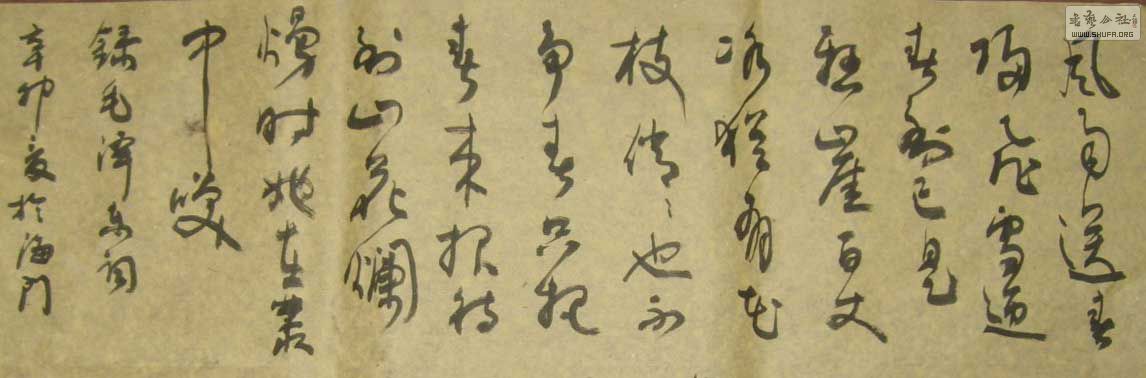 风雨送春
归飞雪迎
春到已是
悬崖百丈
冰犹有花
枝俏〻也不
争春只把
春来报待
到山花爛
熳时她在叢
中咲
録毛泽东词
辛卯夏於海门
书艺公社
WWW.SHUFA.ORG